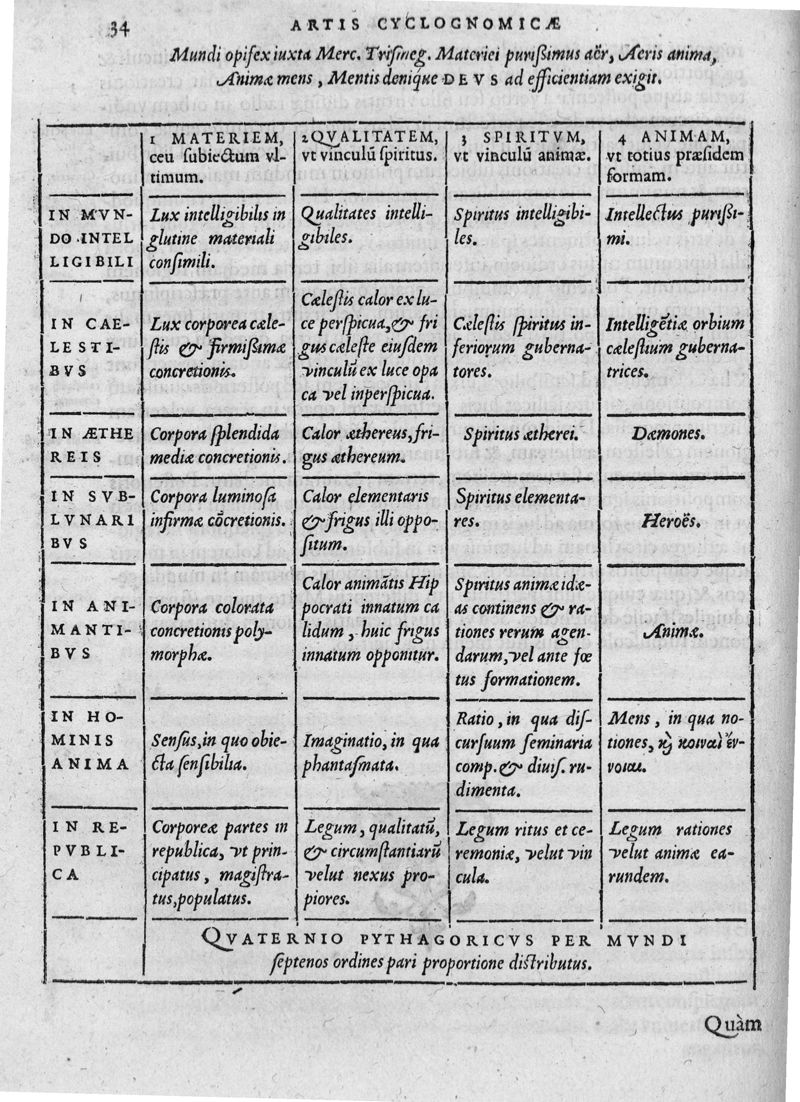 34 ARTIS CYCLOGNOMICÆ
Mundi opifex iuxta Merc. Trismeg. Materiei purißimus aër, Aeris anima,
Animæ mens, Mentis denique DEVS ad efficientiam exigit.
1 MATERIEM,
ceu subiectum vl-
timum.
2 QVALITATEM,
vt vinculū spiritus.
3 SPIRITVM,
vt vinculū animæ.
4 ANIMAM,
vt totius præsidem
formam.
IN MVN-
DO INTEL
LIGIBILI
Lux intelligibilis in
glutine materiali
consimili.
Qualitates intelli-
gibiles.
Spiritus intelligibi-
les.
Intellectus purißi-
mi.
IN CAE-
LESTI-
BVS
Lux corporea cæle-
stis & firmißimæ
concretionis.
Cælestis calor ex lu-
ce perspicua, & fri
gus cæleste eiusdem
vinculū ex luce opa
ca vel inperspicua.
Cælestis spiritus in-
feriorum guberna-
tores.
Intelligētiæ orbium
cælestium guberna-
trices.
IN ÆTHE
REIS
Corpora splendida
mediæ concretionis.
Calor æthereus, fri-
gus æthereum.
Spiritus ætherei.
Dæmones.
IN SVB-
LVNARI
BVS
Corpora luminosa
infirmæ cōcretionis.
Calor elementaris
& frigus illi oppo-
situm.
Spiritus elementa-
res.
Heroës.
IN ANI-
MANTI-
BVS
Corpora colorata
concretionis poly-
morphæ.
Calor animātis Hip
pocrati innatum ca
lidum, huic frigus
innatum opponitur.
Spiritus animæ idæ-
as continens & ra-
tiones rerum agen-
darum, vel ante fœ
tus formationem.
Animæ.
IN HO-
MINIS
ANIMA
Sensus, in quo obie-
cta sensibilia.
Imaginatio, in qua
phantasmata.
Ratio, in qua dis-
cursuum seminaria
comp. & diuis. ru-
dimenta.
Mens, in qua no-
tiones, κὶ κοιναὶ ἔν-
νοιαι.
IN RE-
PVBLI-
CA
Corporeæ partes in
republica, vt prin-
cipatus, magistra-
tus, populatus.
Legum, qualitatū,
& circumstantiarū
velut nexus pro-
piores.
Legum ritus et ce-
remoniæ, velut vin
cula.
Legum rationes
velut animæ ea-
rundem.
QVATERNIO PYTHAGORICVS PER MVNDI
septenos ordines pari proportione distributus.
Quàm